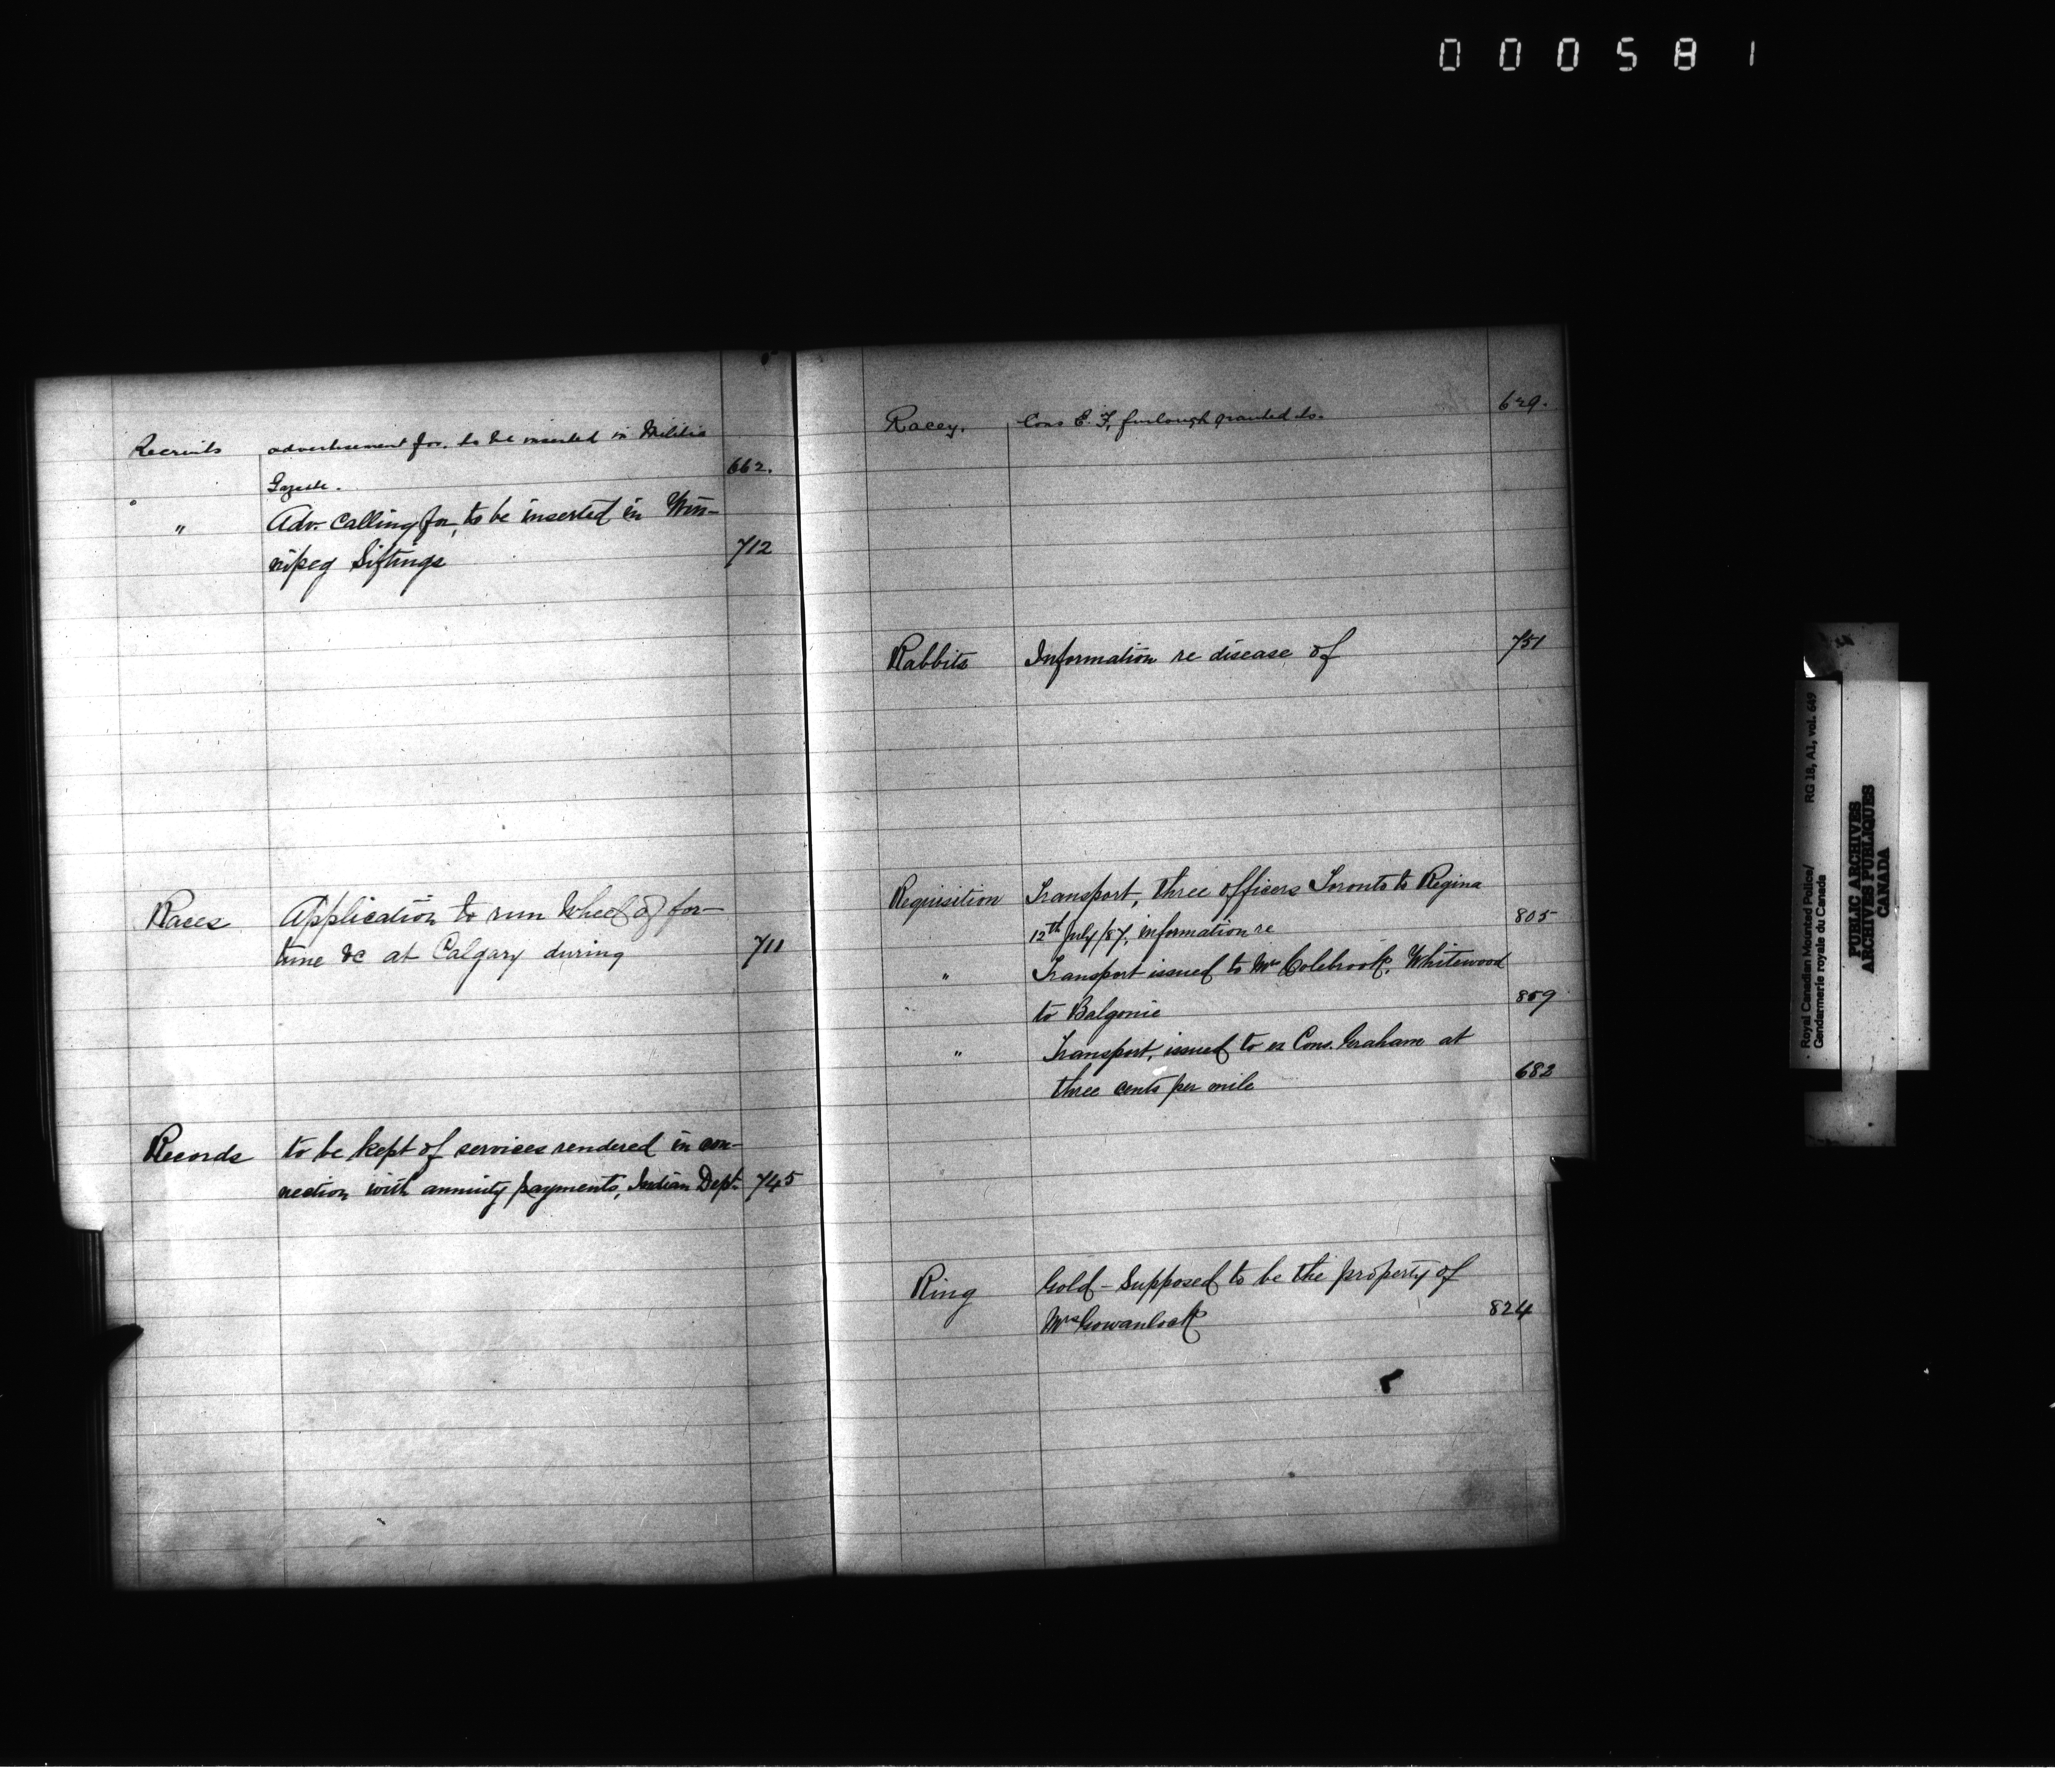 000581
Recruits advertisement for, to be inserted in Militia
Gazette. 662.
" Adv. calling for, to be inserted in Win-
nipeg Siftings 712
Races Application to run Wheel of for-
tune &c at Calgary during 711
Records to be kept of services rendered in con-
nection with annuity payments, Indian Dept. 745
Racey, Cons E. F, furlough granted to. 629.
Rabbits Information re disease of 751
Requisition Transport, three officers Toronto to Regina
12th July/87, information re 805
" Transport issued to Mrs Colebrook, Whitewood
to Balgonie 809
" Transport, issued to ex Cons. Graham at
three cents per mile 682
Ring Gold - Supposed to be the property of
Mrs Gowanlock 824
Royal Canadian Mounted Police/ RG 18, A1, vol. 649
Gendarmerie royale du Canada
PUBLIC ARCHIVES
ARCHIVES PUBLIQUES
CANADA